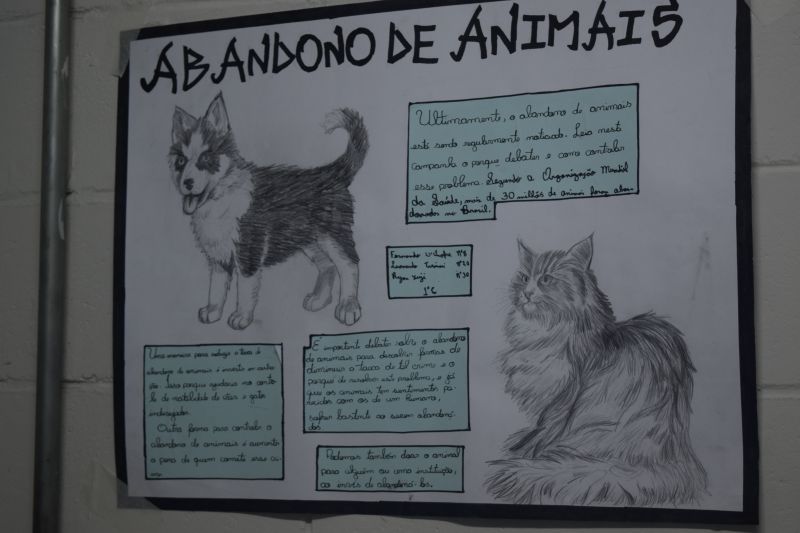 ABANDONO DE ANIMAIS
Ultimamente, o abandono de animais
está sendo regularmente noticiado. Leia nesta
campanha o porque debater e como controlar
esse problema. Segundo a Organização Mundial
da Saúde, mais de 30 milhões de animai foram aban-
donados no Brasil.
Fernando N°8
Leonardo N°20
Ryan N°30
1°C
Uma maneira para reduzir a taxa de
abandono de animais é investir em castra-
ção. Isso porque ajudaria no contro-
le de natalidade de cães e gatos
Outra forma para controlar o
abandono de animais é aumentar
a pena de quem comete esse cri-
É importante debater sobre o abandono
de animais para descobrir formas de
diminuir a taxa de tal crime e o
porque de resolver este problema, e já
que os animais tem sentimentos pa-
recidos com os de um humano,
sofrer bastante ao serem abandona-
dos.
Podemos também doar o animal
para alguém ou uma instituição,
ao invés de abandoná-los.